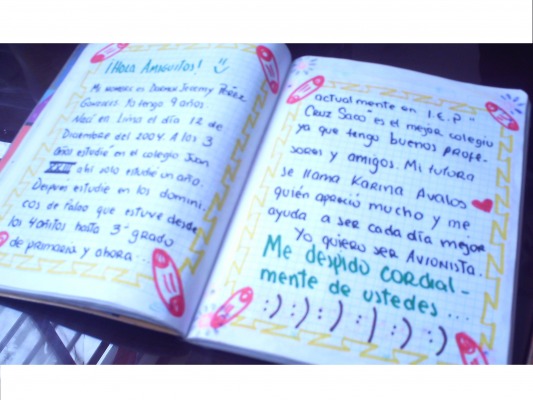 ¡Hola Amiguitos! :)
Mi nombre es Dormer Jeremy Pérez
Gonzales. Yo tengo 9 años.
Nací en Lima el día 12 de
Diciembre del 2004. A los 3
años estudié en el colegio Juan
ahí solo estudié un año.
Despues estudié en los domini
cos de Palao que estuve desde
los 4 añitos hasta 3° grado
de primaria y ahora ...
actualmente en I.E.P "
Cruz Saco" es el mejor colegio
ya que tengo buenos profe-
sores y amigos. Mi tutora
se llama Karina Avalos
quién aprecio mucho y me
ayuda a ser cada día mejor
Yo quiero ser Avionista.
Me despido cordial-
mente de ustedes ...
:) :) :) :) :) :) :)